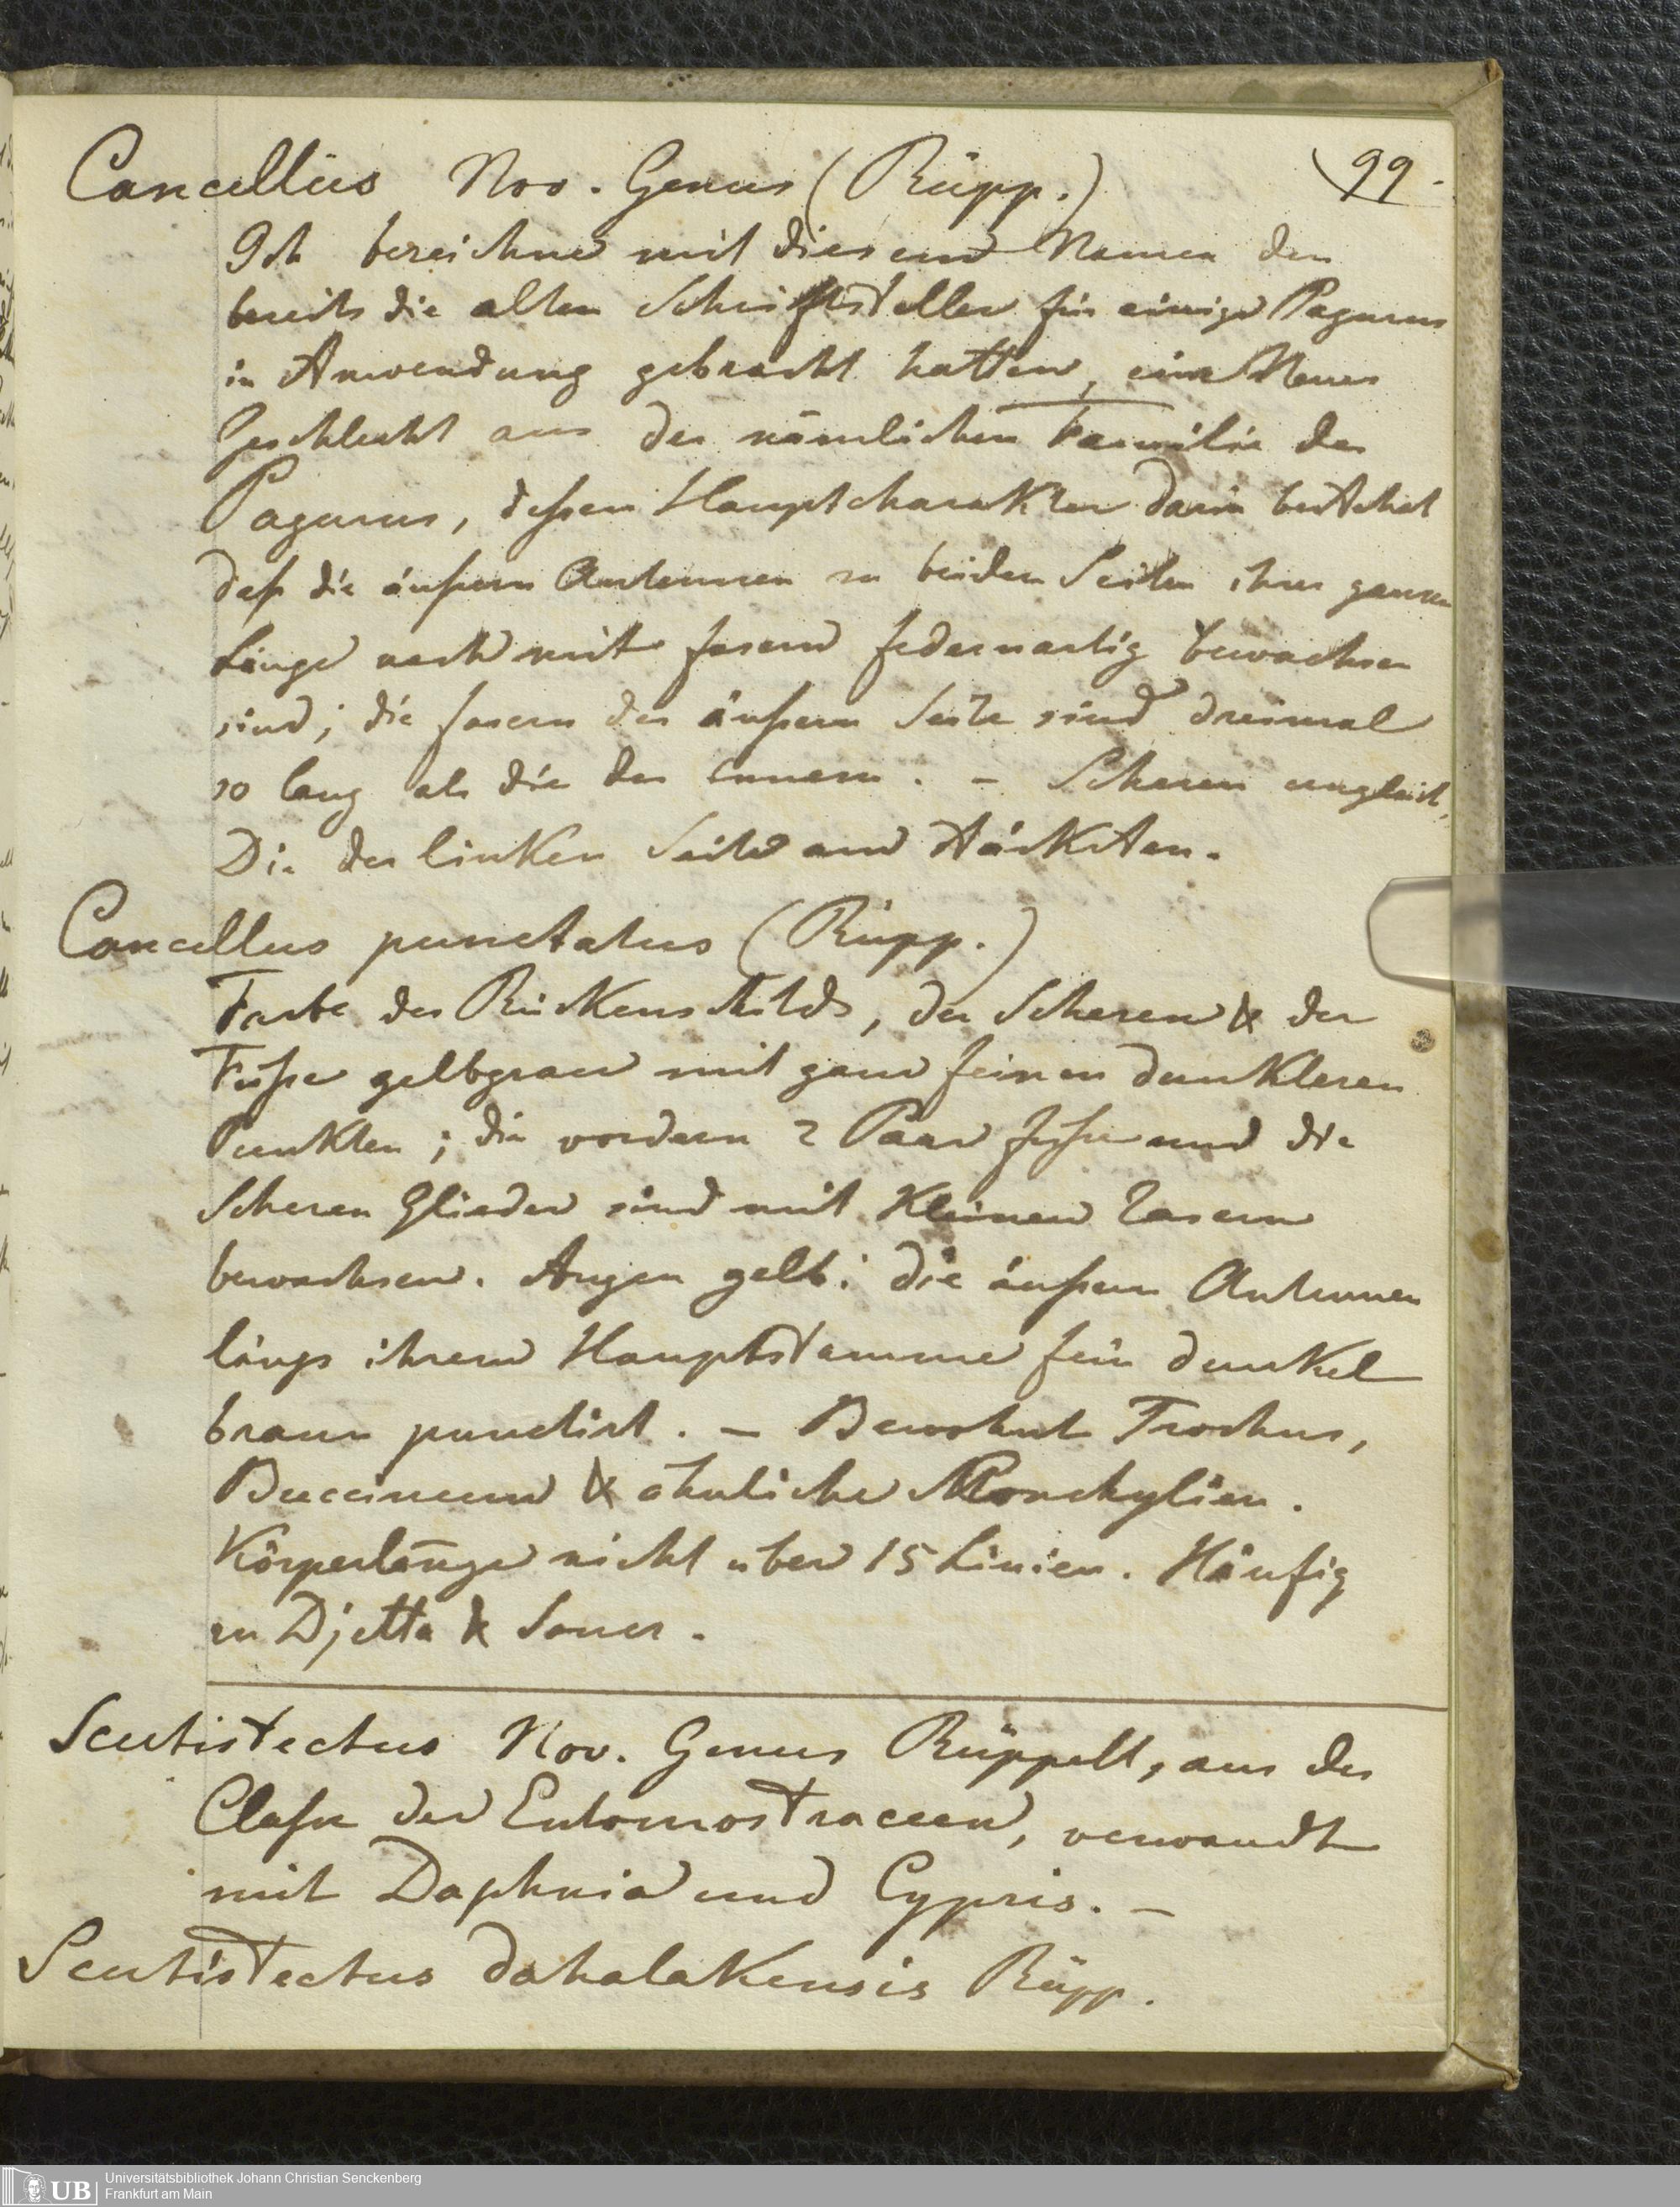 99.
Cancellus Nov. Genus (Rüpp.)
Ich bezeichne mit diesem Namen den
bereits die alten Schriftsteller für einige Pagurus
in Anwendung gebracht hatten, eine Neues
Geschlecht aus der nämlichen Familie der
Pagurus, deßen Hauptcharakter darin bestehet
daß die äußern Antennen zu beiden Seiten ihrer ganzen
Länge nach mit fasern federnartig bewachsen
sind; die fasern der äußern Seite sind dreimal
so lang als die der innern. – Scheren ungleich,
Die der linken Seite am stärksten.
Cancellus punctatus (Rüpp.)
Farbe des Rückenschilds, der Scheren & der
Füße gelbgrau mit ganz feinen dunkleren
Punkten; die vordern 2 Paar füße und die
Scheren Glieder sind mit kleinen Zasern
bewachsen. Augen gelb; die äußern Antennen
längs ihrem Hauptstamme fein dunkel
braun punctirt. – Bewohnt Trochus,
Buccinum & ähnliche Konchylien.
Körperlänge nicht uber 15 Linien. Häufig
zu Djetta & Souer.
Scutistectus Nov. Genus Rüppell, aus der
Claße der Entomostraceen, verwandt
mit Daphnia und Cypris. –
Scutistectus dahalakensis Rüpp.
UB Universitätsbibliothek Johann Christian Senckenberg
Frankfurt am Main